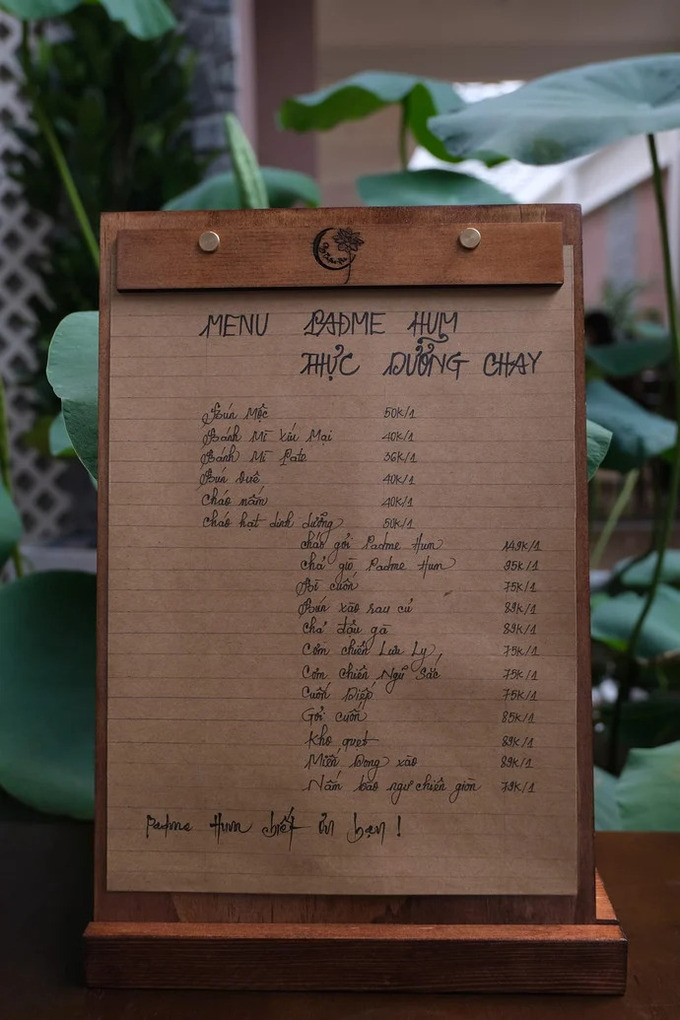 MENU PADME HUM
THỰC DƯỠNG CHAY
Bún Mộc 50K/1
Bánh Mì Xíu Mại 40K/1
Bánh Mì Pate 36K/1
Bún Quê 40K/1
Cháo nấm 40K/1
Cháo hạt dinh dưỡng 50K/1
cháo gỏi Padme Hum 149K/1
chả giò Padme Hum 95K/1
Bì cuốn 75K/1
Bún xào rau củ 89K/1
Chả đậu gà 89K/1
Cơm chiên Lưu Ly 75K/1
Cơm chiên Ngũ Sắc 75K/1
Cuốn Diếp 75K/1
Gỏi cuốn 85K/1
Kho quẹt 89K/1
Miến Dong xào 89K/1
Nấm bào ngư chiên giòn 79K/1
Padme Hum biết ơn bạn !